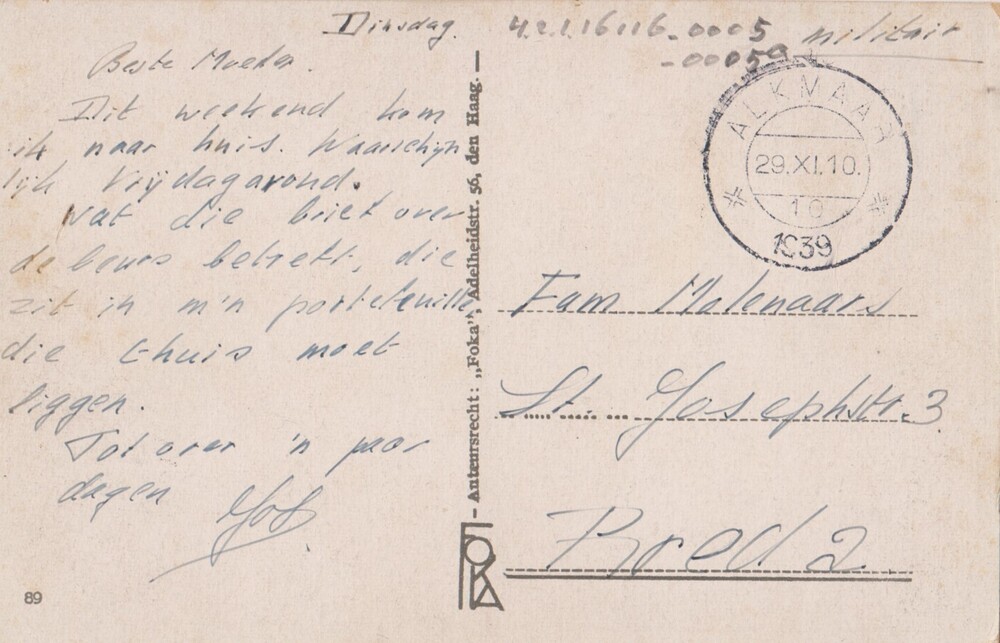 Dinsdag.
Beste Moeder.
Dit weekend kom
ik naar huis. Waarschijn
lijk Vrijdagavond.
Wat die brief over
de beurs betreft, die
zit in m'n portefeuille
die thuis moet
liggen.
Tot over 'n paar
dagen
Jos
89
- Auteursrecht: „Foka”, Adelheidstr. 56, den Haag. -
FOKA
-0005 militair
-00059
ALKMAAR
29.XI.10.
10
1939
Fam Molenaars
St. Josephstr. 3
Breda